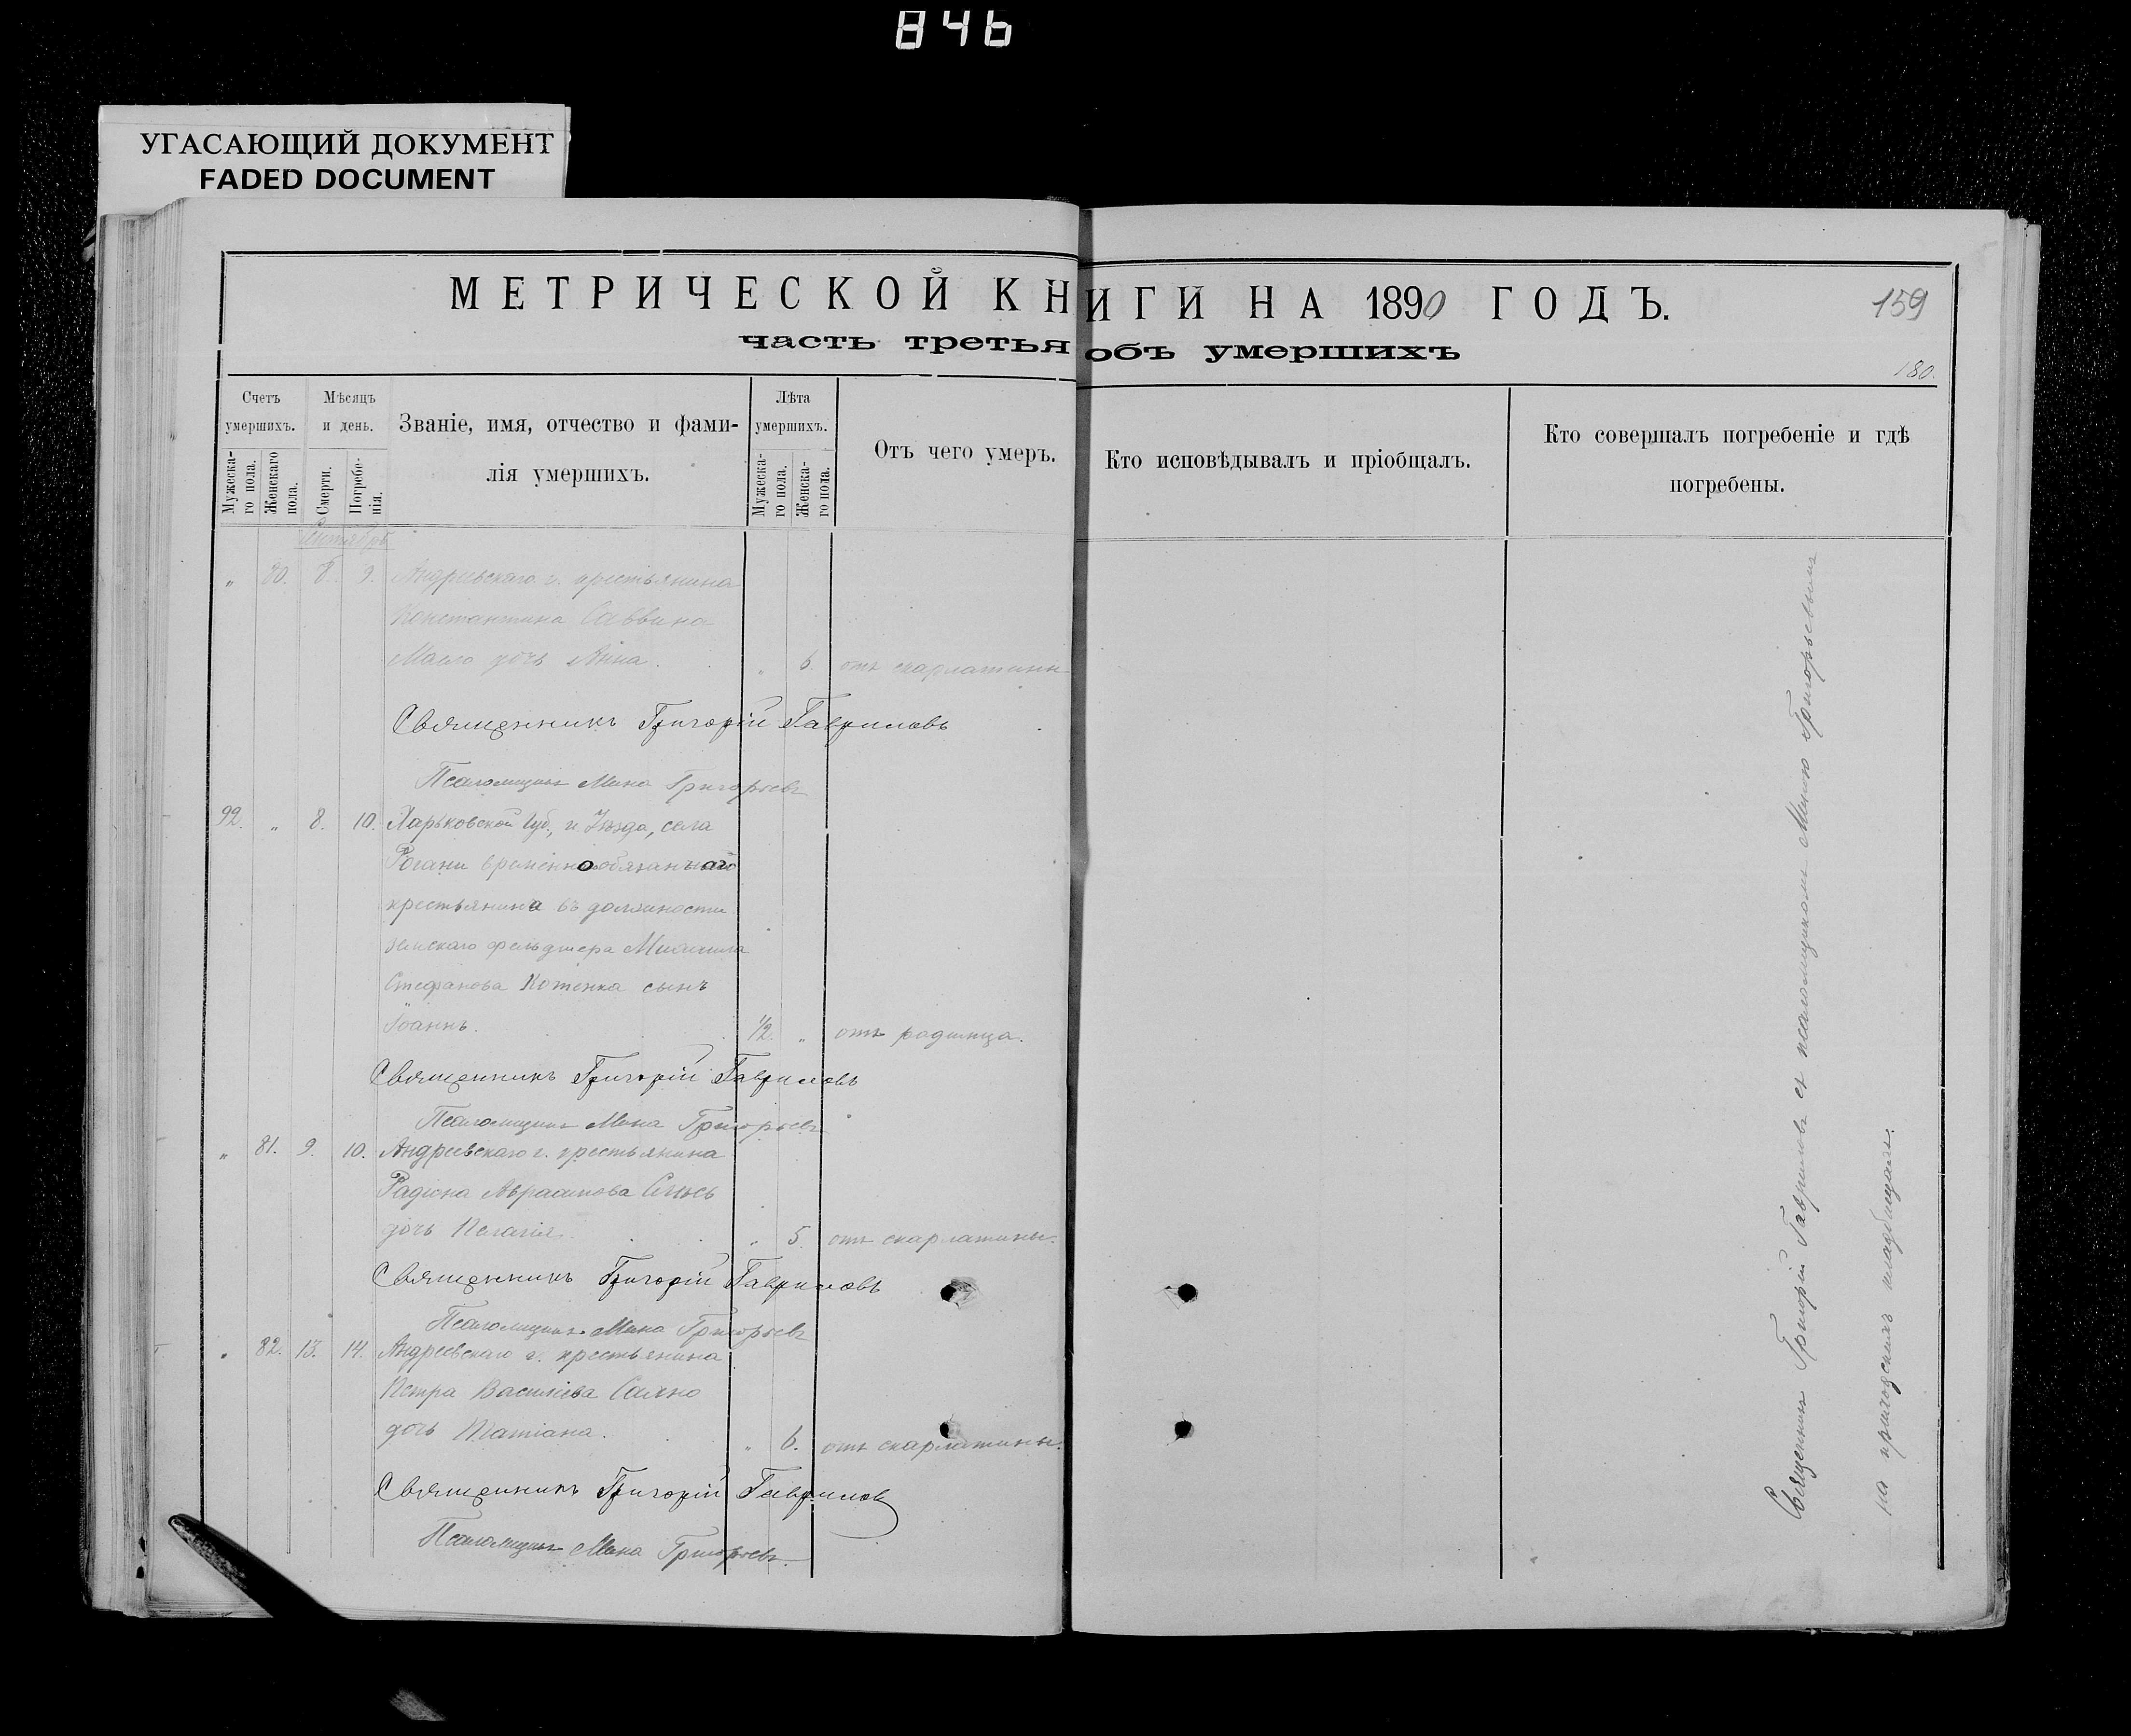 846
УГАСАЮЩИЙ ДОКУМЕНТ
FADED DOCUMENT
МЕТРИЧЕСКОЙ КНИГИ НА 1890 ГОДЪ.
159
часть третья объ умершихъ
180.
Счетъ умершихъ.
Мужеска-го пола.
Женскаго пола.
Мѣсяцъ и день.
Смерти.
Погребе-нія.
Званіе, имя, отчество и фами-
лія умершихъ.
Лѣта умершихъ.
Мужеска-го пола.
Женска-го пола.
Отъ чего умеръ.
Кто исповѣдывалъ и пріобщалъ.
Кто совершалъ погребеніе и гдѣ
погребены.
Сентябрь
" 80. 8. 9. Андреевскаго г. крестьянина
Константина Саввина
Масло дочь Анна. " 6. отъ скарлатины
Священникъ Григорій Гавриловъ
Псаломщикъ Мина Григорьевъ
92. " 8. 10. Харьковской Губ., и Уѣзда, села
Рогани временнообязаннаго
крестьянина въ должности
земскаго фельдшера Михаила
Стефанова Котенка сынъ
Іоаннъ. 1/2. " отъ родимца.
Священникъ Григорій Гавриловъ
Псаломщикъ Мина Григорьевъ
" 81. 9. 10. Андреевскаго г. крестьянина
Радіона Авраамова
дочь Пелагія. " 5. отъ скарлатины.
Священникъ Григорій Гавриловъ
Псаломщикъ Мина Григорьевъ
" 82. 13. 14. Андреевскаго г. крестьянина
Петра Василіева
дочь Татіана. " 6. отъ скарлатины.
Священникъ Григорій Гавриловъ
Псаломщикъ Мина Григорьевъ.
Священникъ Григорій Гавриловъ съ псаломщикомъ Миною Григорьевымъ
на приходскихъ кладбищахъ.